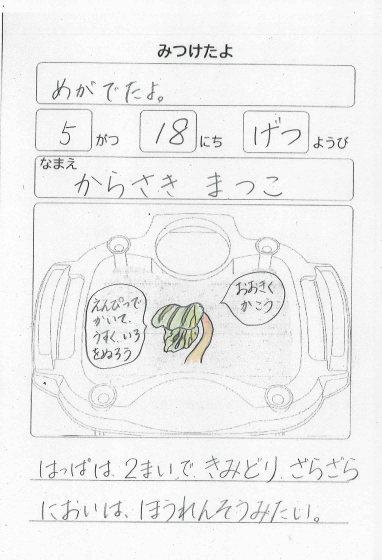 みつけたよ
めがでたよ。
5 がつ 18 にち げつ ようび
なまえ
からさき まつこ
えんぴつで
かいて、
うすく、いろ
をぬろう
おおきく
かこう
はっぱは、2まいで、きみどり、ざらざら
においは、ほうれんそうみたい。